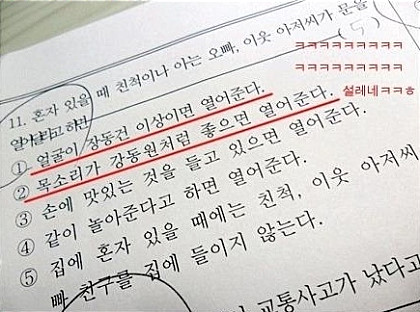 ㅋㅋㅋㅋㅋㅋㅋㅋㅋ
ㅋㅋㅋㅋㅋㅋㅋㅋㅋ
11. 혼자 있을 때 친척이나 아는 오빠, 이웃 아저씨가 문을
열어달라고 하면
(5)
① 얼굴이 장동건 이상이면 열어준다.
설레네ㅋㅋㅎ
② 목소리가 강동원처럼 좋으면 열어준다.
③ 손에 맛있는 것을 들고 있으면 열어준다.
④ 같이 놀아준다고 하면 열어준다.
⑤ 집에 혼자 있을 때에는 친척, 이웃 아저씨
빠, 친구를 집에 들이지 않는다.
교통사고가 났다고